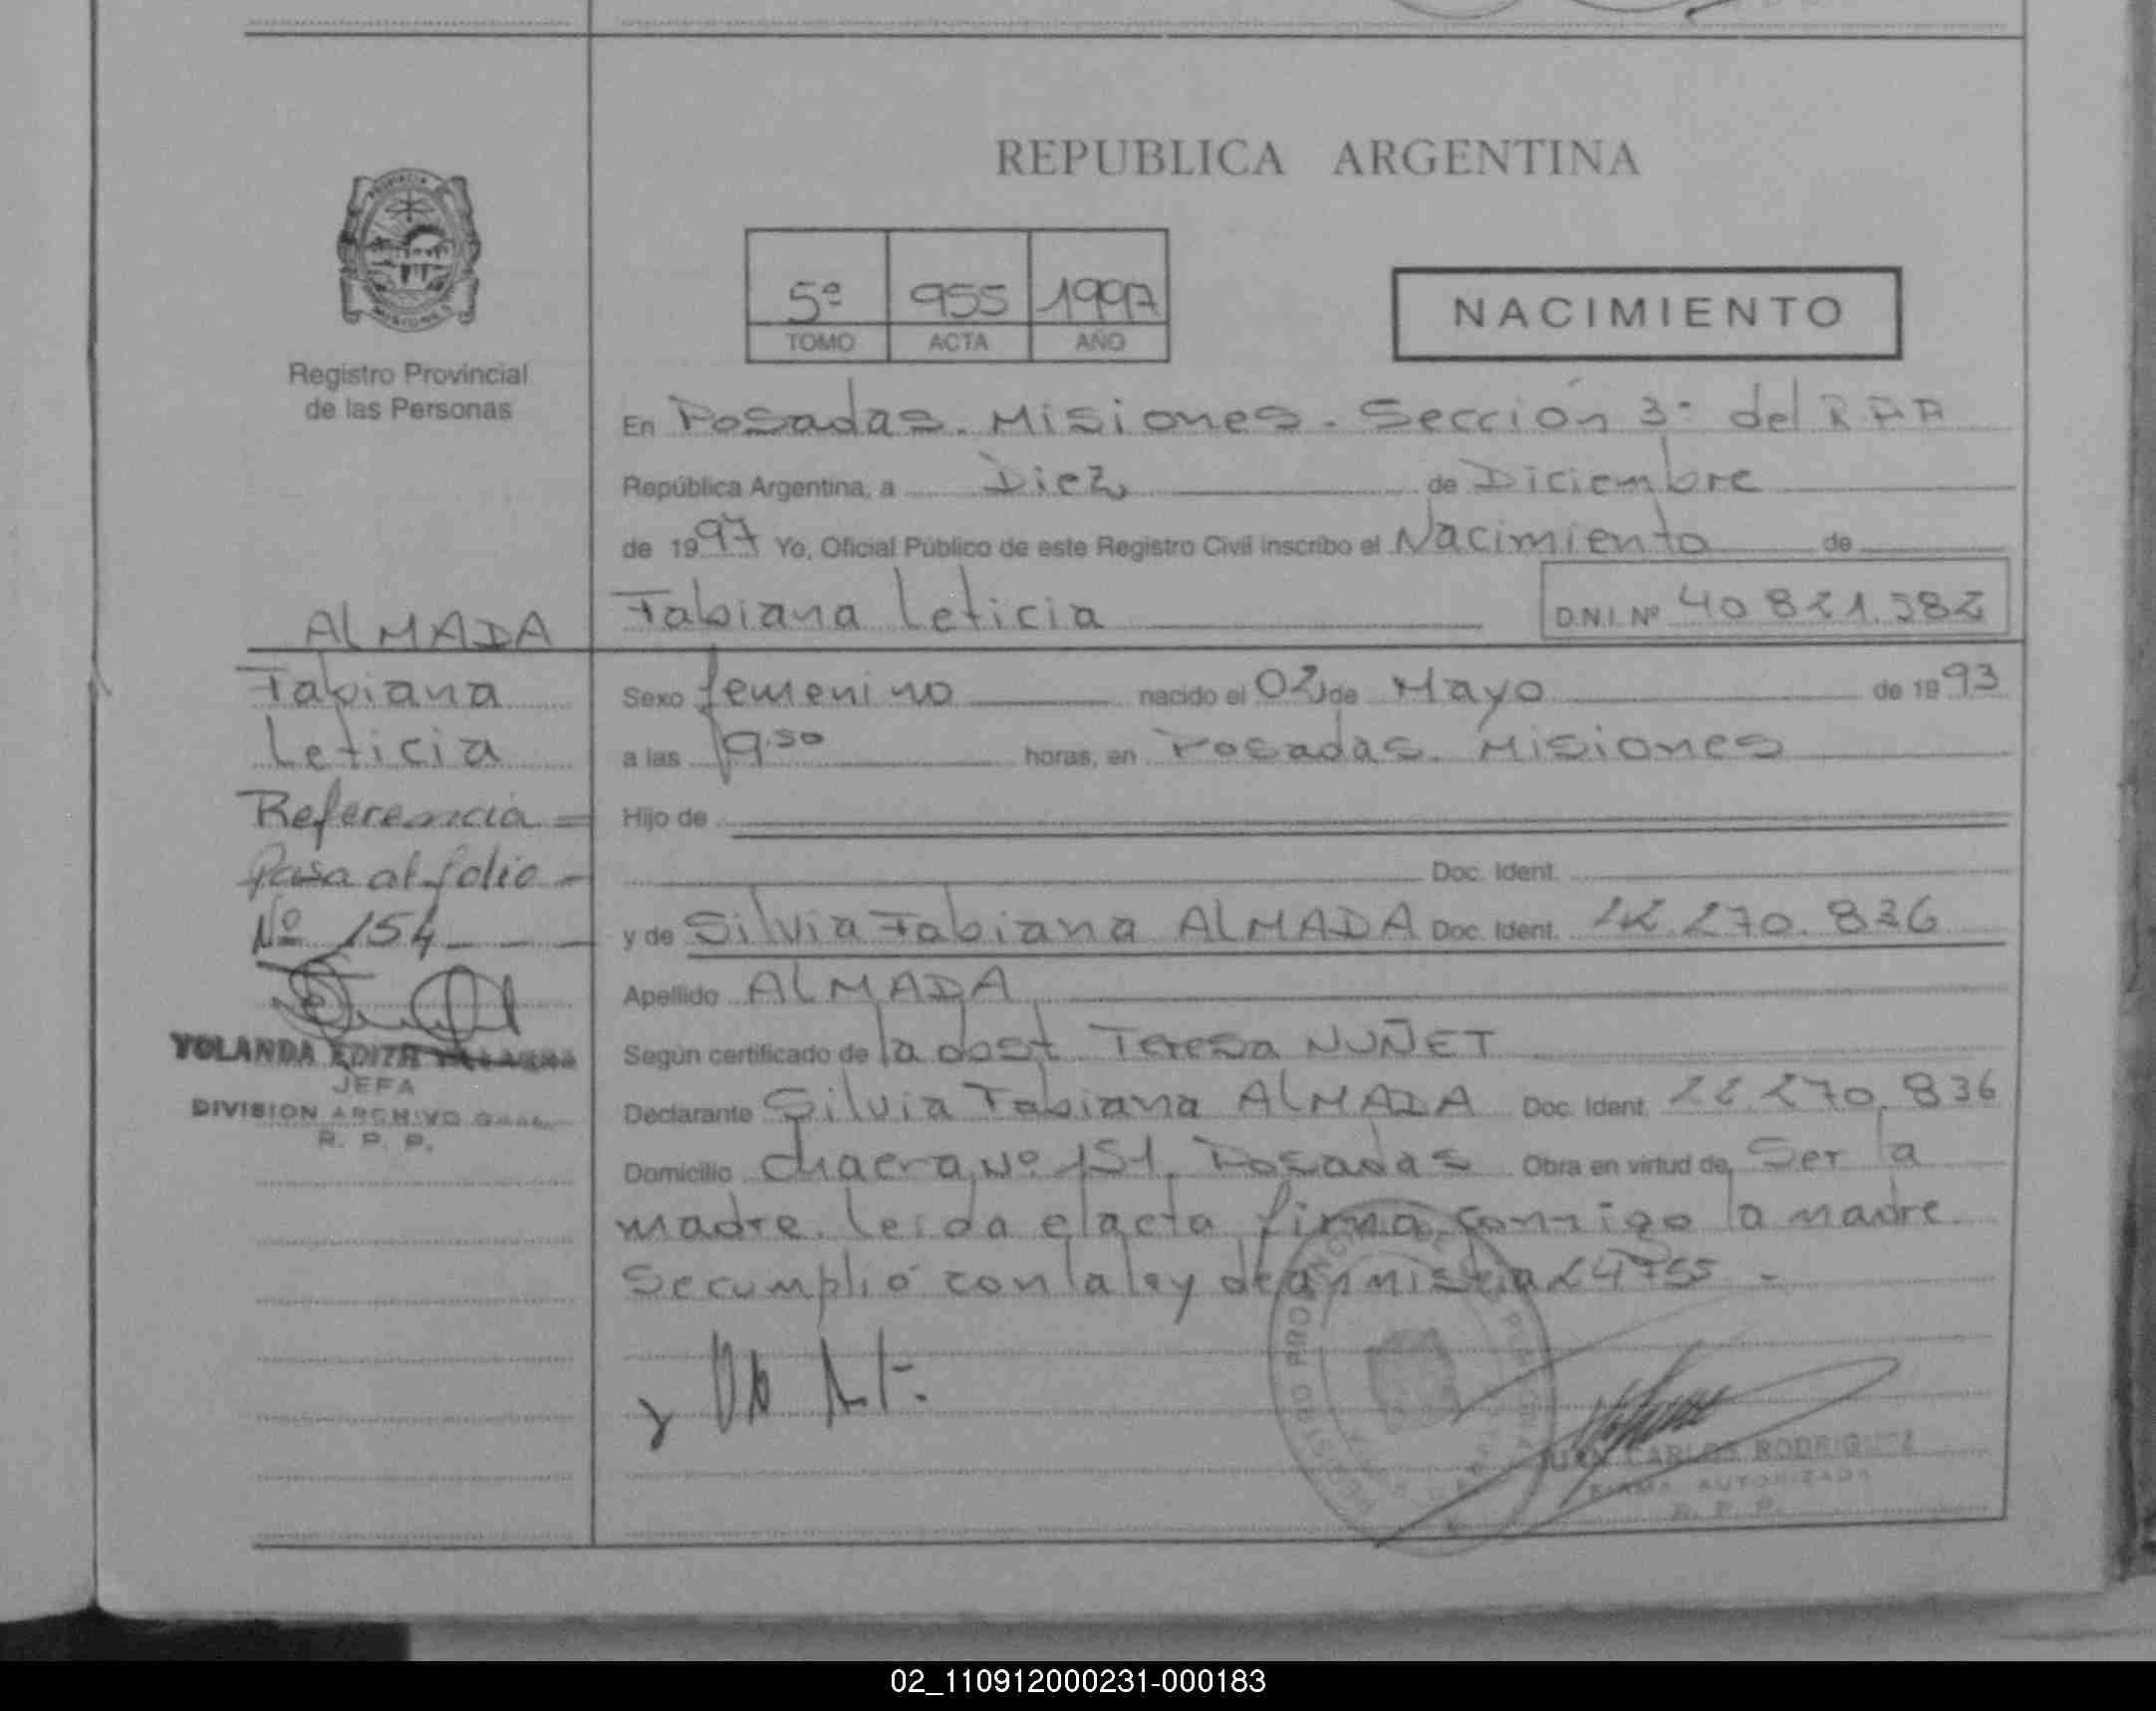 REPUBLICA ARGENTINA
5º 955 1997
TOMO ACTA AÑO
NACIMIENTO
Registro Provincial
de las Personas
En Posadas. Misiones. Sección 3º del R.P.P
República Argentina, a Diez de Diciembre
de 1997 Yo, Oficial Público de este Registro Civil inscribo el Nacimiento de
Fabiana Leticia D.N.I. Nº 40 821.382
ALMADA
Fabiana
Leticia
Referencia =
Pasa al folio -
Nº 154
YOLANDA EDITH
JEFA
DIVISION ARCHIVO GRAL.
R. P. P.
Sexo femenino nacido el 02 de Mayo de 1993
a las 19.50 horas, en Posadas. Misiones
Hijo de
Doc. Ident.
y de Silvia Fabiana ALMADA Doc. Ident. 22.270.836
Apellido ALMADA
Según certificado de la obst. Teresa NUÑET
Declarante Silvia Fabiana ALMADA Doc. Ident. 22.270.836
Domicilio chacra Nº 151. Posadas Obra en virtud de Ser la
madre. Leida el acta firma conmigo la madre.
Se cumplió con la ley de amnistia 24755 -
REGISTRO PROVINCIAL DE
JUAN CARLOS RODRIGUEZ
FIRMA AUTORIZADA
R. P. P.
02_110912000231-000183